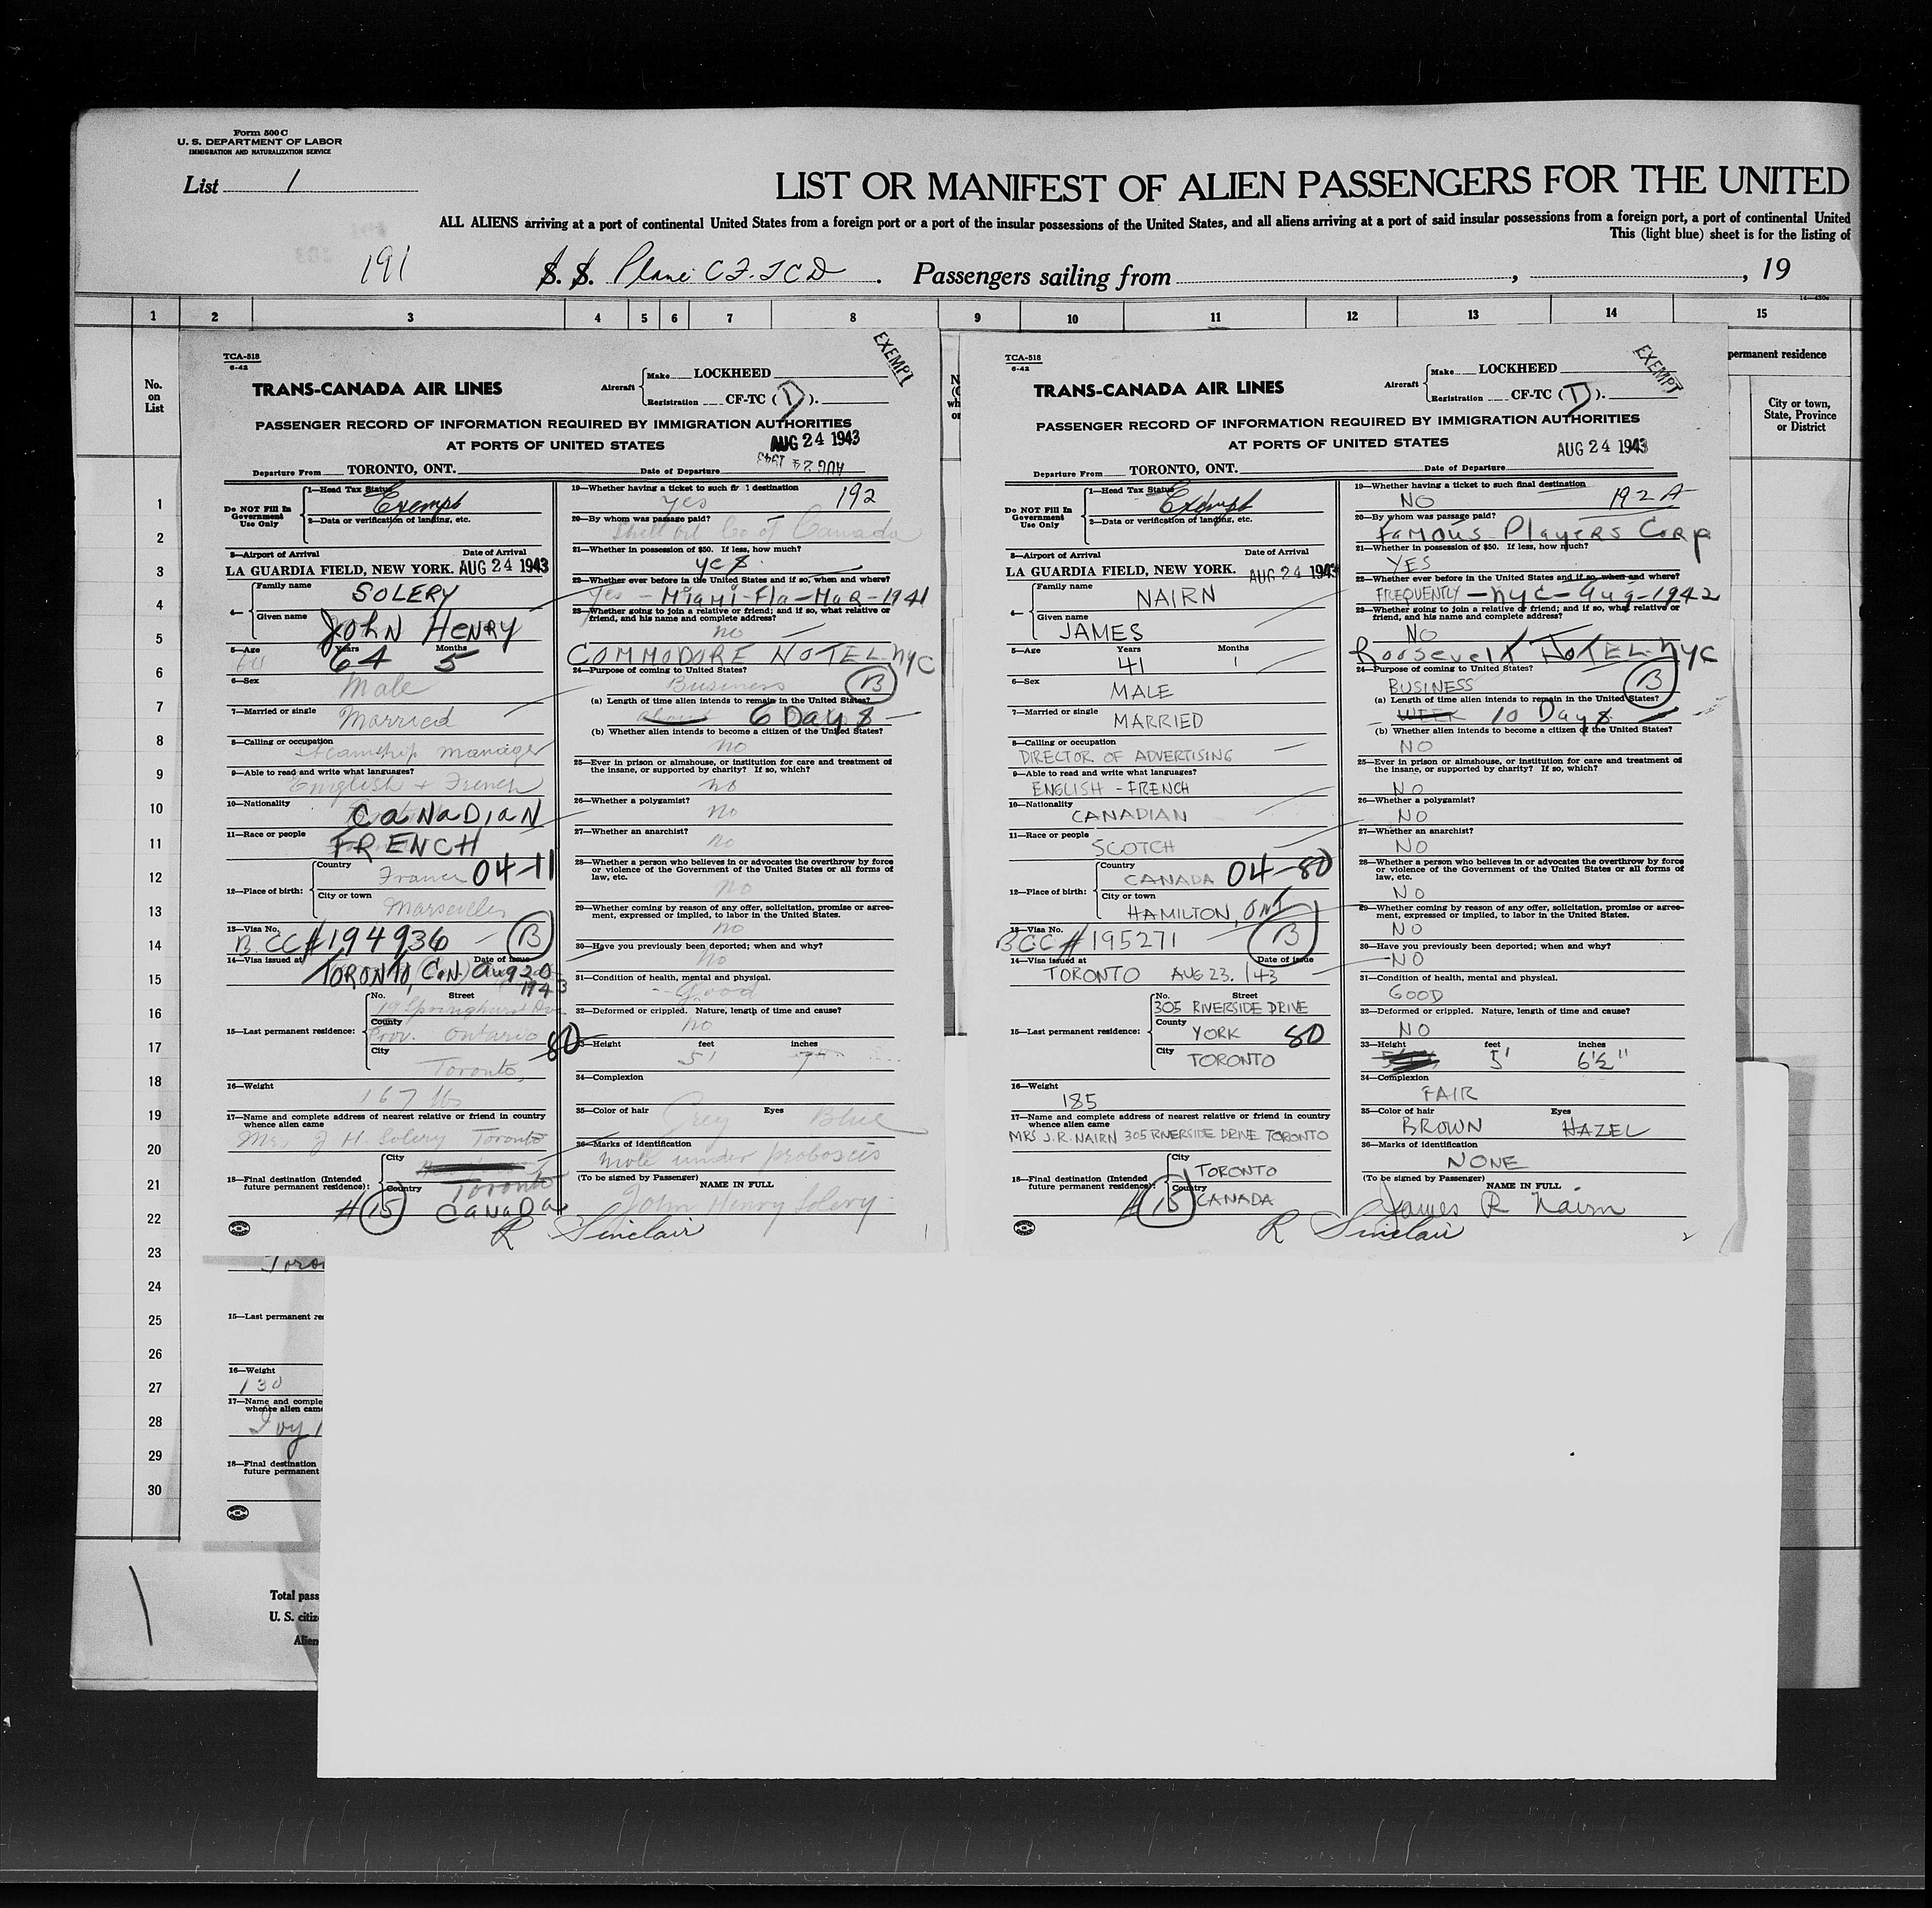 Form 500 C
U. S. DEPARTMENT OF LABOR
IMMIGRATION AND NATURALIZATION SERVICE
List 1
LIST OR MANIFEST OF ALIEN PASSENGERS FOR THE UNITED
ALL ALIENS arriving at a port of continental United States from a foreign port or a port of the insular possessions of the United States, and all aliens arriving at a port of said insular possessions from a foreign port, a port of continental United
This (light blue) sheet is for the listing of
191 S. S. Plane CF. TCD. Passengers sailing from , , 19
1 2 3 4 5 6 7 8 9 10 11 12 13 14 15
No. on List
permanent residence
City or town, State, Province or District
1
2
3
4
5
6
7
8
9
10
11
12
13
14
15
16
17
18
19
20
21
22
23
24
25
26
27
28
29
30
TCA-518
6-42
EXEMPT
TRANS-CANADA AIR LINES
Aircraft Make LOCKHEED
Registration CF-TC ( D ).
PASSENGER RECORD OF INFORMATION REQUIRED BY IMMIGRATION AUTHORITIES
AT PORTS OF UNITED STATES
AUG 24 1943
AUG 24 1943
Departure From TORONTO, ONT. Date of Departure
Do NOT Fill In Government Use Only
1—Head Tax Status
Exempt
2—Data or verification of landing, etc.
3—Airport of Arrival Date of Arrival
LA GUARDIA FIELD, NEW YORK. AUG 24 1943
4— Family name
SOLERY
Given name
JOHN HENRY
5—Age Years Months
64 5
6—Sex
Male
7—Married or single
Married
8—Calling or occupation
Steamship manager
9—Able to read and write what languages?
English + French
10—Nationality
CANADIAN
11—Race or people
FRENCH
12—Place of birth: Country
France 04-11
City or town
Marseilles
13—Visa No.
B.CC #194936 B
14—Visa issued at Date of Issue
TORONTO, CAN. Aug 20 1943
15—Last permanent residence: No. Street
19 Springhurst Ave
County
Prov. Ontario 80
City
Toronto,
16—Weight
167 lbs
17—Name and complete address of nearest relative or friend in country whence alien came
Mrs J H. Solery Toronto
18—Final destination (Intended future permanent residence): City
Toronto
Country
#15 CANADA
19—Whether having a ticket to such final destination
yes 192
20—By whom was passage paid?
Shell oil Co of Canada
21—Whether in possession of $50. If less, how much?
yes.
22—Whether ever before in the United States and if so, when and where?
Yes - Miami-Fla-Mar-1941
23—Whether going to join a relative or friend; and if so, what relative or friend, and his name and complete address?
no
COMMODORE HOTEL NYC
24—Purpose of coming to United States?
Business B
(a) Length of time alien intends to remain in the United States?
about 6 Days
(b) Whether alien intends to become a citizen of the United States?
no
25—Ever in prison or almshouse, or institution for care and treatment of the insane, or supported by charity? If so, which?
no
26—Whether a polygamist?
no
27—Whether an anarchist?
no
28—Whether a person who believes in or advocates the overthrow by force or violence of the Government of the United States or all forms of law, etc.
no
29—Whether coming by reason of any offer, solicitation, promise or agreement, expressed or implied, to labor in the United States.
no
30—Have you previously been deported; when and why?
no
31—Condition of health, mental and physical.
Good
32—Deformed or crippled. Nature, length of time and cause?
no
33—Height feet inches
5' 7"
34—Complexion
35—Color of hair Grey Eyes Blue
36—Marks of identification
mole under proboscis
(To be signed by Passenger) NAME IN FULL
John Henry Solery
R Sinclair
1
TCA-518
6-42
EXEMPT
TRANS-CANADA AIR LINES
Aircraft Make LOCKHEED
Registration CF-TC ( D ).
PASSENGER RECORD OF INFORMATION REQUIRED BY IMMIGRATION AUTHORITIES
AT PORTS OF UNITED STATES
AUG 24 1943
Departure From TORONTO, ONT. Date of Departure
Do NOT Fill In Government Use Only
1—Head Tax Status
Exempt
2—Data or verification of landing, etc.
3—Airport of Arrival Date of Arrival
LA GUARDIA FIELD, NEW YORK. AUG 24 1943
4— Family name
NAIRN
Given name
JAMES
5—Age Years Months
41 1
6—Sex
MALE
7—Married or single
MARRIED
8—Calling or occupation
DIRECTOR OF ADVERTISING
9—Able to read and write what languages?
ENGLISH - FRENCH
10—Nationality
CANADIAN
11—Race or people
SCOTCH
12—Place of birth: Country
CANADA 04-80
City or town
HAMILTON, ONT
13—Visa No.
BCC #195271 B
14—Visa issued at Date of Issue
TORONTO AUG 23. 143
15—Last permanent residence: No. Street
305 RIVERSIDE DRIVE
County
YORK 80
City
TORONTO
16—Weight
185
17—Name and complete address of nearest relative or friend in country whence alien came
MRS J.R. NAIRN 305 RIVERSIDE DRIVE TORONTO
18—Final destination (Intended future permanent residence): City
TORONTO
Country
#15 CANADA
19—Whether having a ticket to such final destination
NO 192 A
20—By whom was passage paid?
FAMOUS PLAYERS CORP
21—Whether in possession of $50. If less, how much?
YES
22—Whether ever before in the United States and if so, when and where?
FREQUENTLY - NYC - Aug-1942
23—Whether going to join a relative or friend; and if so, what relative or friend, and his name and complete address?
NO
Roosevelt HOTEL-NYC
24—Purpose of coming to United States?
BUSINESS B
(a) Length of time alien intends to remain in the United States?
WEEK 10 Days
(b) Whether alien intends to become a citizen of the United States?
NO
25—Ever in prison or almshouse, or institution for care and treatment of the insane, or supported by charity? If so, which?
NO
26—Whether a polygamist?
NO
27—Whether an anarchist?
NO
28—Whether a person who believes in or advocates the overthrow by force or violence of the Government of the United States or all forms of law, etc.
NO
29—Whether coming by reason of any offer, solicitation, promise or agreement, expressed or implied, to labor in the United States.
NO
30—Have you previously been deported; when and why?
NO
31—Condition of health, mental and physical.
GOOD
32—Deformed or crippled. Nature, length of time and cause?
NO
33—Height feet inches
5' 6½"
34—Complexion
FAIR
35—Color of hair Eyes
BROWN HAZEL
36—Marks of identification
NONE
(To be signed by Passenger) NAME IN FULL
James R Nairn
R Sinclair
2
Toro
15—Last permanent re
16—Weight
130
17—Name and comple
whence alien came
Ivy
18—Final destination
future permanent
Total pass
U. S. citiz
Alien